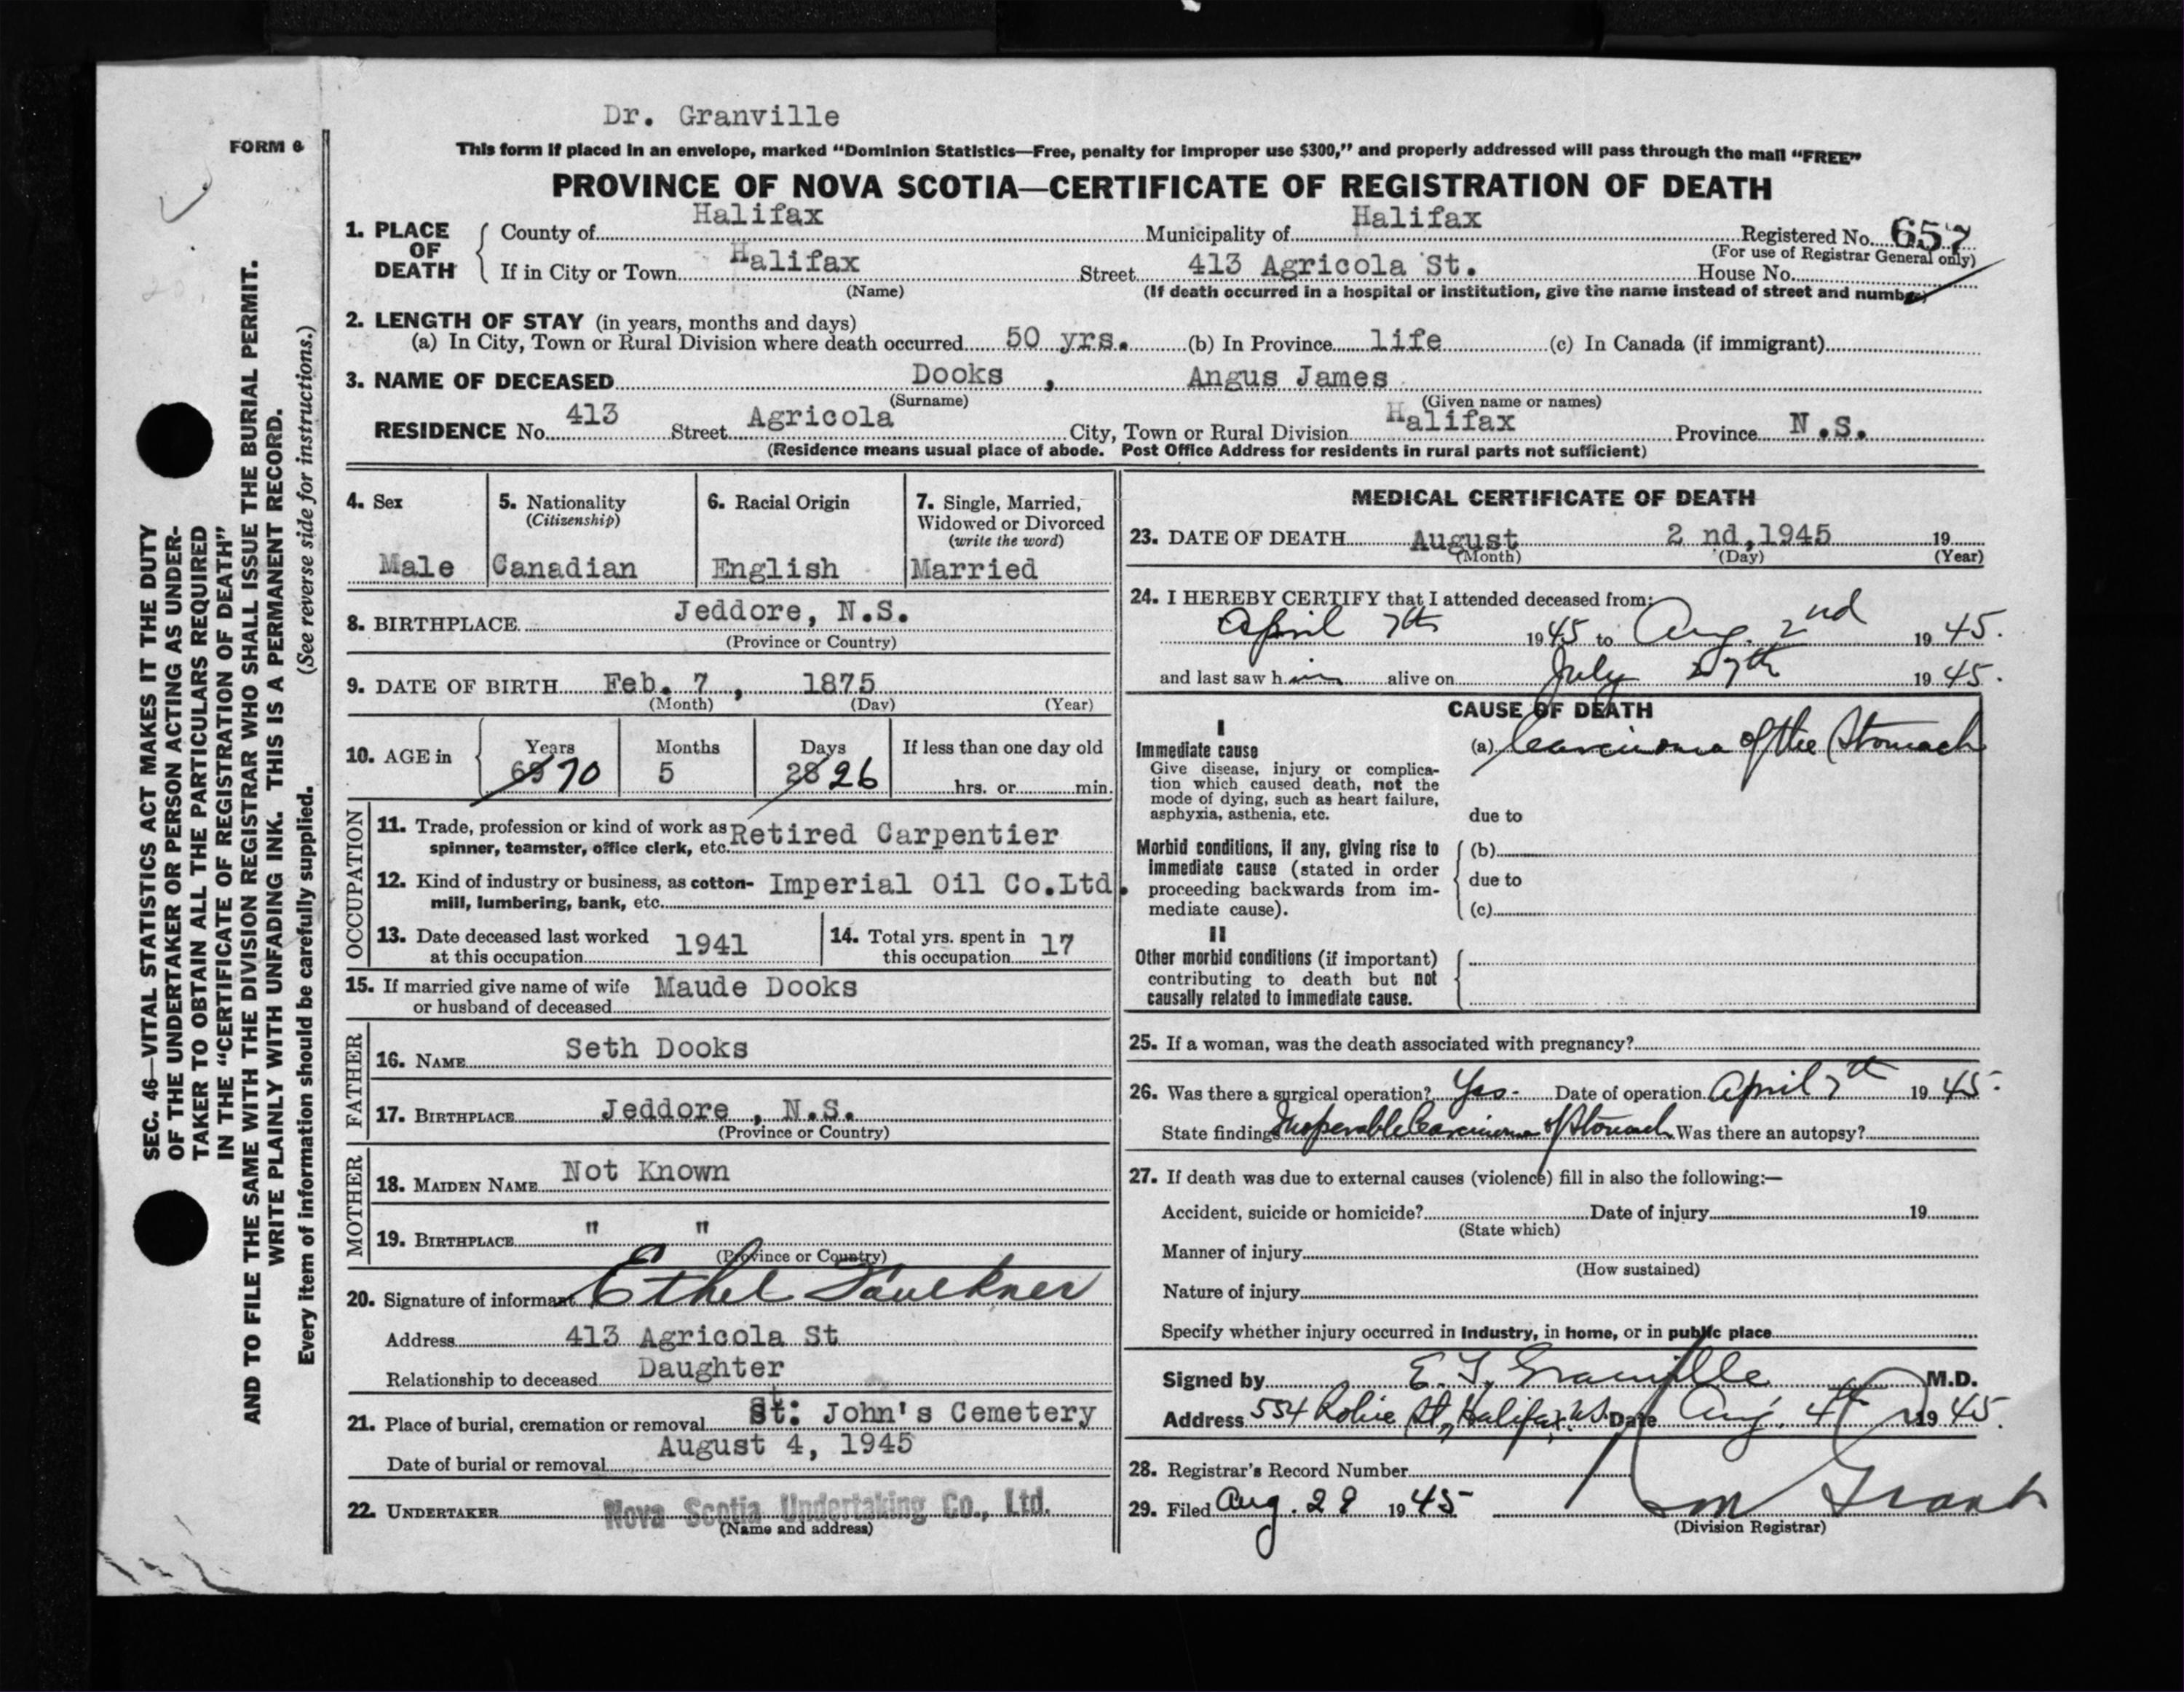 Dr. Granville
FORM 6
This form if placed in an envelope, marked "Dominion Statistics—Free, penalty for improper use $300," and properly addressed will pass through the mail "FREE"
PROVINCE OF NOVA SCOTIA—CERTIFICATE OF REGISTRATION OF DEATH
1. PLACE OF DEATH County of Halifax Municipality of Halifax Registered No. 657
(For use of Registrar General only)
If in City or Town Halifax Street 413 Agricola St. House No.
(Name) (If death occurred in a hospital or institution, give the name instead of street and number)
2. LENGTH OF STAY (in years, months and days)
(a) In City, Town or Rural Division where death occurred 50 yrs. (b) In Province life (c) In Canada (if immigrant)
3. NAME OF DECEASED Dooks , Angus James
(Surname) (Given name or names)
RESIDENCE No. 413 Street Agricola City, Town or Rural Division Halifax Province N.S.
(Residence means usual place of abode. Post Office Address for residents in rural parts not sufficient)
4. Sex
Male
5. Nationality
(Citizenship)
Canadian
6. Racial Origin
English
7. Single, Married,
Widowed or Divorced
(write the word)
Married
8. BIRTHPLACE Jeddore, N.S.
(Province or Country)
9. DATE OF BIRTH Feb. 7 , 1875
(Month) (Day) (Year)
10. AGE in Years Months Days If less than one day old
69 70 5 28 26 hrs. or min.
OCCUPATION
11. Trade, profession or kind of work as Retired Carpentier
spinner, teamster, office clerk, etc.
12. Kind of industry or business, as cotton- Imperial Oil Co.Ltd.
mill, lumbering, bank, etc.
13. Date deceased last worked 1941 14. Total yrs. spent in 17
at this occupation this occupation
15. If married give name of wife Maude Dooks
or husband of deceased
FATHER
16. NAME Seth Dooks
17. BIRTHPLACE Jeddore , N.S.
(Province or Country)
MOTHER
18. MAIDEN NAME Not Known
19. BIRTHPLACE " "
(Province or Country)
20. Signature of informant Ethel Faulkner
Address 413 Agricola St
Relationship to deceased Daughter
21. Place of burial, cremation or removal St: John's Cemetery
Date of burial or removal August 4, 1945
22. UNDERTAKER Nova Scotia Undertaking Co., Ltd.
(Name and address)
MEDICAL CERTIFICATE OF DEATH
23. DATE OF DEATH August 2 nd,1945 19
(Month) (Day) (Year)
24. I HEREBY CERTIFY that I attended deceased from:
April 7th 1945 to Aug. 2nd 1945.
and last saw him alive on July 27th 1945.
CAUSE OF DEATH
I
Immediate cause (a) Carcinoma of the Stomach
Give disease, injury or complica-
tion which caused death, not the
mode of dying, such as heart failure,
asphyxia, asthenia, etc. due to
Morbid conditions, if any, giving rise to (b)
immediate cause (stated in order due to
proceeding backwards from im-
mediate cause). (c)
II
Other morbid conditions (if important)
contributing to death but not
causally related to immediate cause.
25. If a woman, was the death associated with pregnancy?
26. Was there a surgical operation? Yes- Date of operation April 7th 1945.
State findings Inoperable Carcinoma of Stomach Was there an autopsy?
27. If death was due to external causes (violence) fill in also the following:—
Accident, suicide or homicide? Date of injury 19
(State which)
Manner of injury
(How sustained)
Nature of injury
Specify whether injury occurred in industry, in home, or in public place
Signed by E. F. Granville M.D.
Address 554 Robie St., Halifax, N.S. Date Aug. 4th 1945.
28. Registrar's Record Number
29. Filed Aug. 29 1945 Grant
(Division Registrar)
SEC. 46—VITAL STATISTICS ACT MAKES IT THE DUTY
OF THE UNDERTAKER OR PERSON ACTING AS UNDER-
TAKER TO OBTAIN ALL THE PARTICULARS REQUIRED
IN THE "CERTIFICATE OF REGISTRATION OF DEATH"
AND TO FILE THE SAME WITH THE DIVISION REGISTRAR WHO SHALL ISSUE THE BURIAL PERMIT.
WRITE PLAINLY WITH UNFADING INK. THIS IS A PERMANENT RECORD.
Every item of information should be carefully supplied. (See reverse side for instructions.)